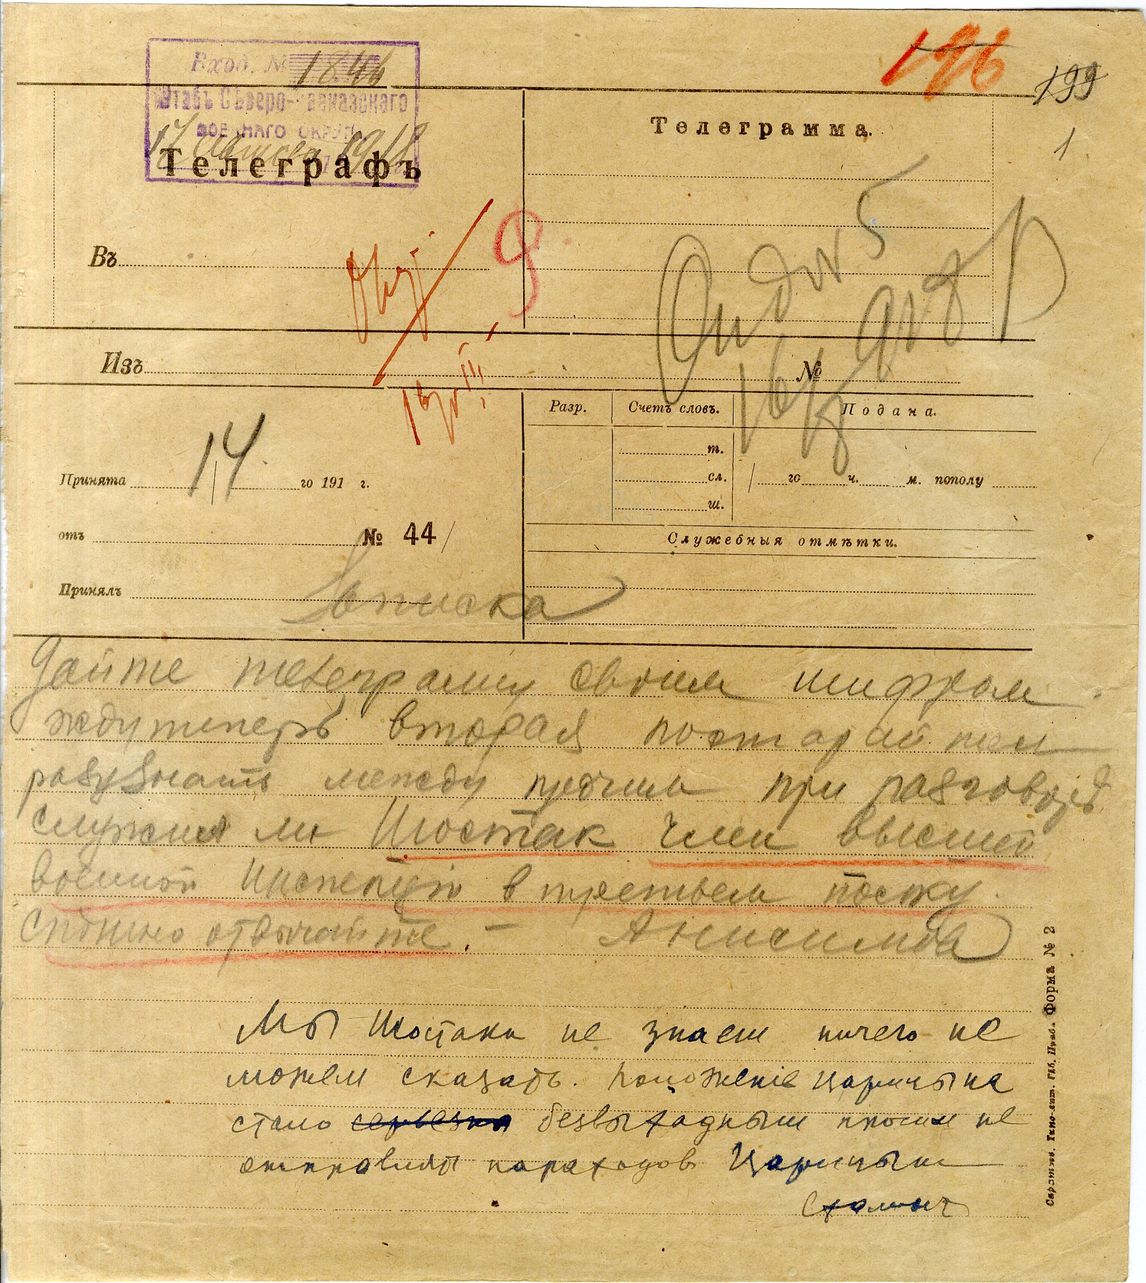 196
199
1
Вход. № 1844
Штабъ Сѣверо-Кавказскаго
военнаго округа
17 августа 1918
Телеграфъ
Телеграмма.
Въ
9
5
Изъ
№
16/
Разр.
Счетъ словъ.
Подана.
т.
сл.
ш.
го ч. м. пополу
Принята 14 го 191 г.
отъ № 44/
Служебныя отмѣтки.
Принялъ
Записка
Дайте телеграмму своим шифром
жду теперь вторая постарай
разузнать между прочим при разговоре
служил ли Шостак член высшей
военной инспекции в третьем полку.
Спешно отвечайте. – Анисимов
Мы Шостака не знаем ничего не
можем сказать. Положение Царицына
стало серьезна безвыходным просим не
отправлять пароходов Царицын
Саратовъ, Типо-лит. Губ. Правл. Форма № 2